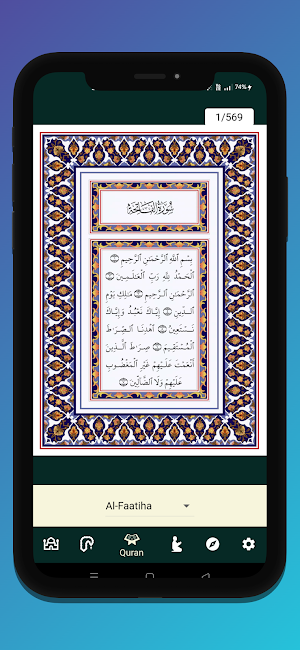 74%
1/569
سُورَةُ الفَاتِحَةِ
بِسْمِ اللَّهِ الرَّحْمَٰنِ الرَّحِيمِ ۝
الْحَمْدُ لِلَّهِ رَبِّ الْعَالَمِينَ ۝
الرَّحْمَٰنِ الرَّحِيمِ ۝ مَالِكِ يَوْمِ
الدِّينِ ۝ إِيَّاكَ نَعْبُدُ وَإِيَّاكَ
نَسْتَعِينُ ۝ اهْدِنَا الصِّرَاطَ
الْمُسْتَقِيمَ ۝ صِرَاطَ الَّذِينَ
أَنْعَمْتَ عَلَيْهِمْ غَيْرِ الْمَغْضُوبِ
عَلَيْهِمْ وَلَا الضَّالِّينَ ۝
Al-Faatiha
Quran